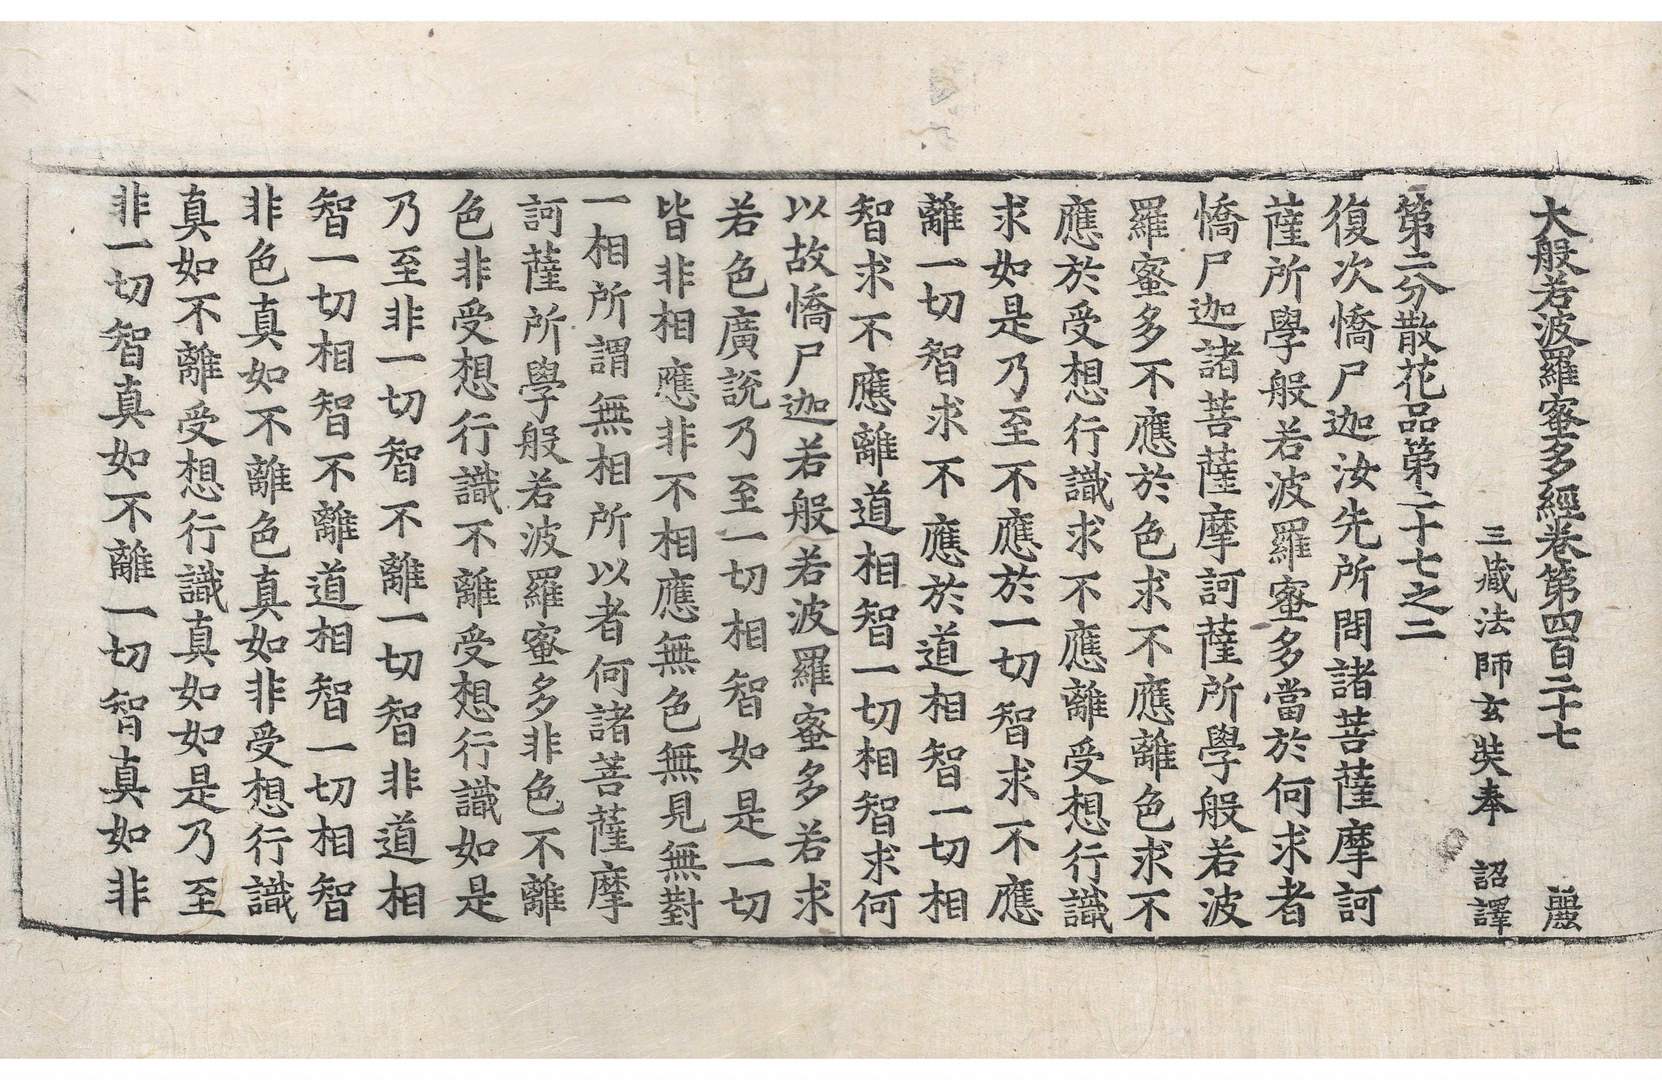 大般若波羅蜜多經卷第四百二十七 麗
三藏法師玄奘奉 詔譯
第二分散花品第二十七之二
復次憍尸迦汝先所問諸菩薩摩訶
薩所學般若波羅蜜多當於何求者
憍尸迦諸菩薩摩訶薩所學般若波
羅蜜多不應於色求不應離色求不
應於受想行識求不應離受想行識
求如是乃至不應於一切智求不應
離一切智求不應於道相智一切相
智求不應離道相智一切相智求何
以故憍尸迦若般若波羅蜜多若求
若色廣說乃至一切相智如是一切
皆非相應非不相應無色無見無對
一相所謂無相所以者何諸菩薩摩
訶薩所學般若波羅蜜多非色不離
色非受想行識不離受想行識如是
乃至非一切智不離一切智非道相
智一切相智不離道相智一切相智
非色真如不離色真如非受想行識
真如不離受想行識真如如是乃至
非一切智真如不離一切智真如非